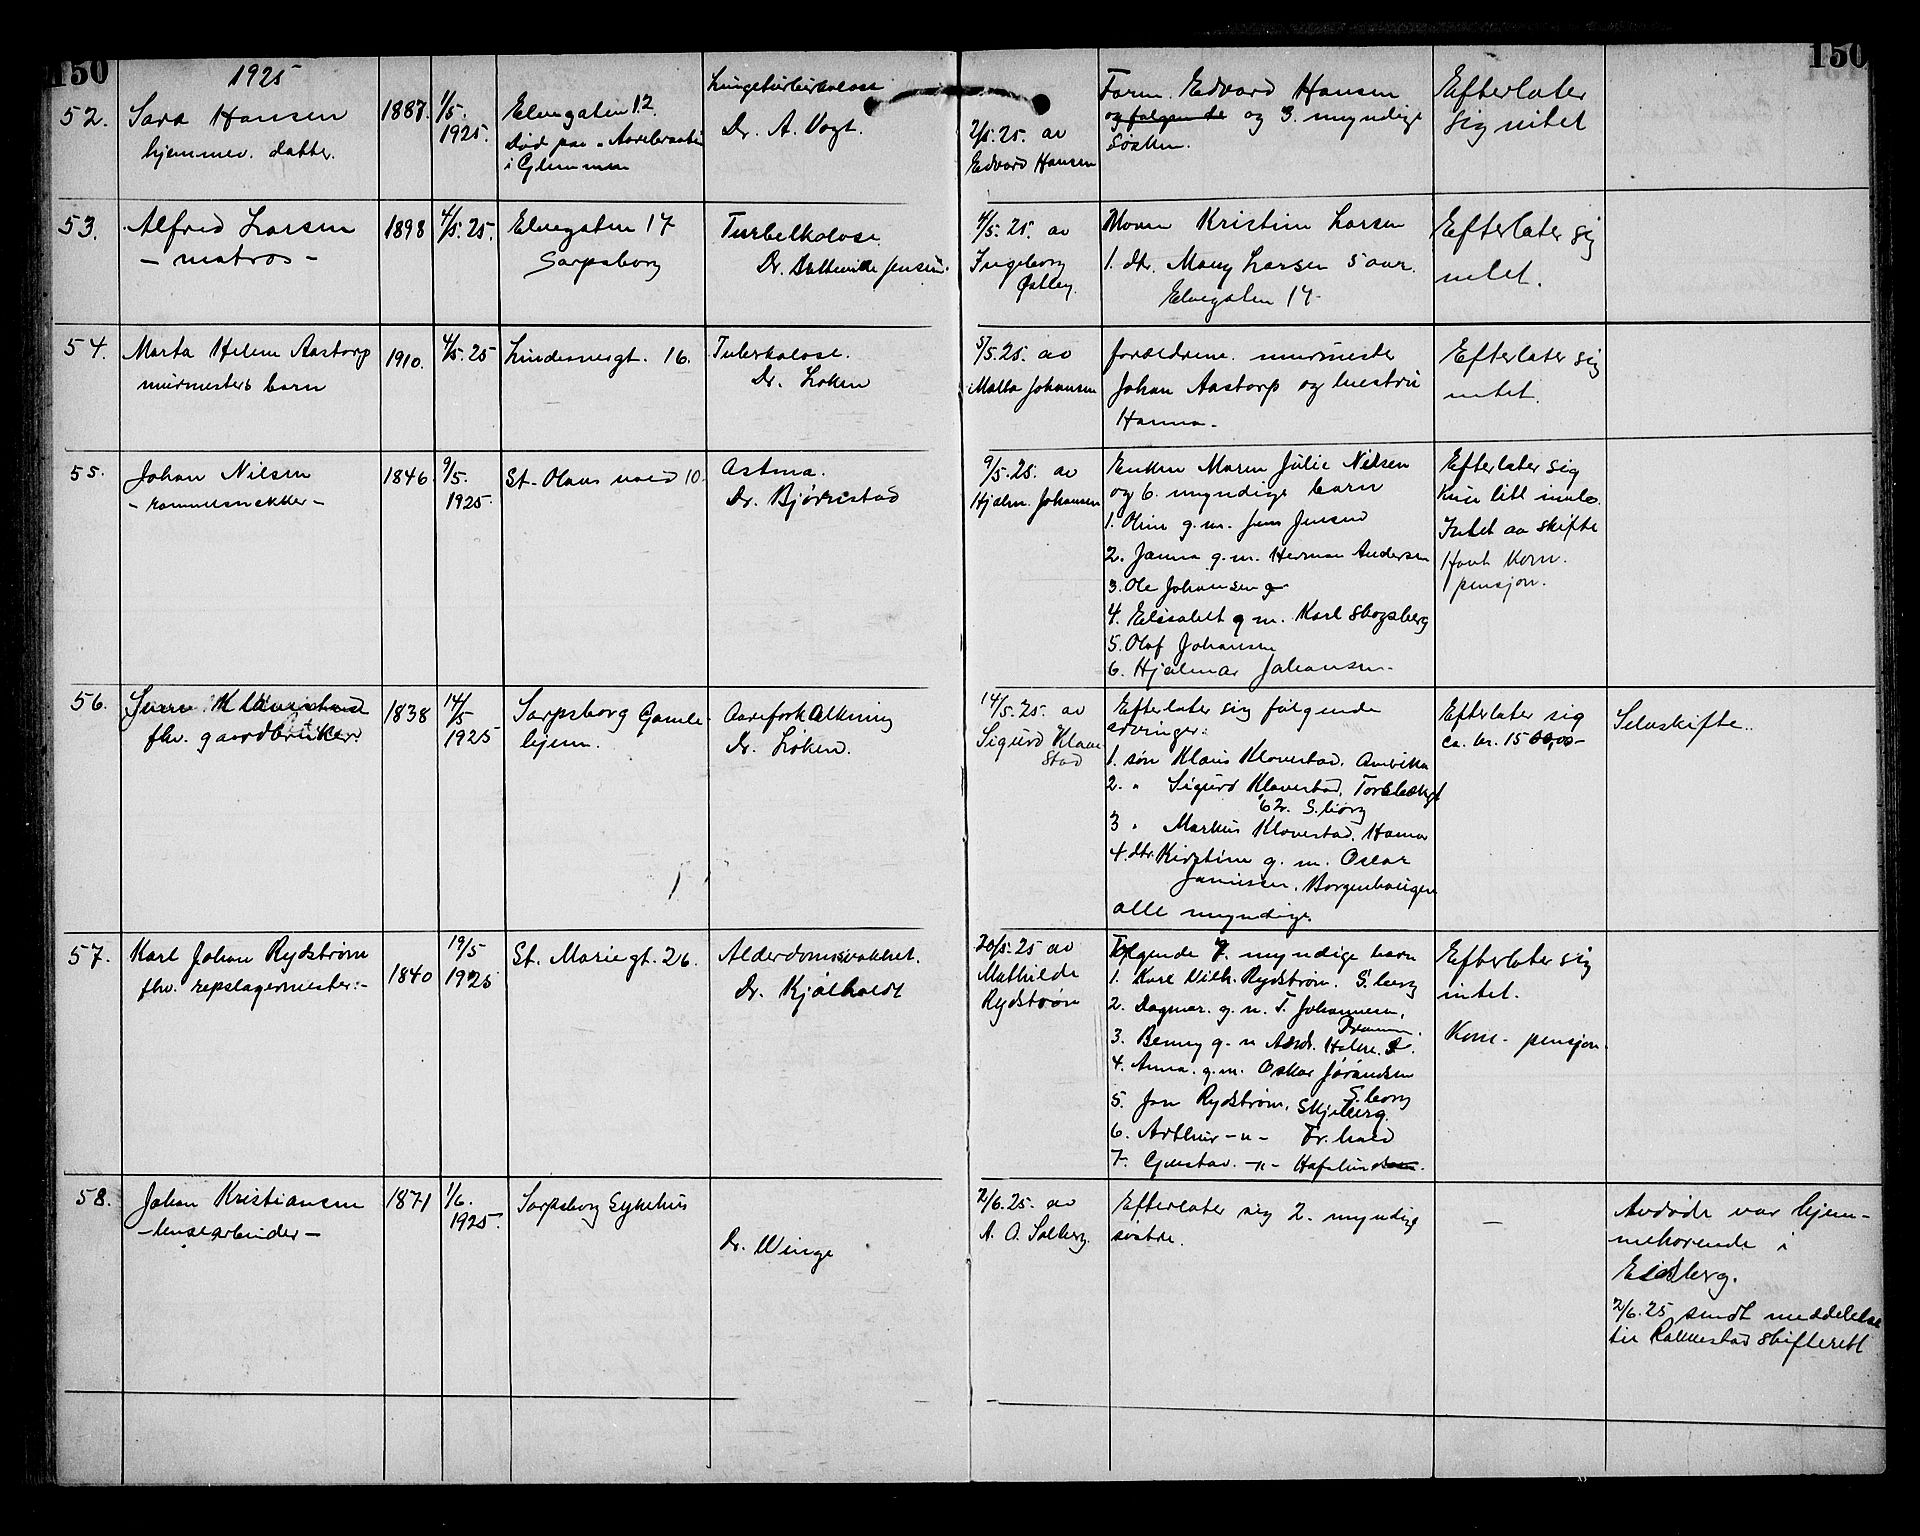 150
150
1925
52.
Sara Hansen
hjemmev. datter.
1887.
1/5.
1925.
Elvegaten 12.
død paa
i Glemmen
Lungetuberkulose
Dr. A. Vogt.
2/5.25. av
Edvard Hansen
Faren Edvard Hansen
og følgende og 3. myndige
søsken.
Efterlater
sig intet
53.
Alfred Larsen
- matros -
1898
4/5.25.
Elvegaten 17
Sarpsborg
Turbelkolose
Dr. Jensen.
4/5.25. av
Ingeborg
Østby.
Moren Kristine Larsen
1. dtr. Mary Larsen 5 aar.
Elvegaten 17-
Efterlater sig
intet.
54.
Marta Helene Aastorp
murmesters barn
1910.
4/5.25
Lindesnesgt. 16.
Tuberkolose.
Dr. Løken
5/5.25. av
Marta Johansen
forældrene murmester
Johan Aastorp og hustru
Hanna.
Efterlater sig
intet.
55.
Johan Nilsen
- rammesnekker -
1846
9/5.
1925.
St. Olavs vold 10.
Astma.
Dr. Bjørnstad
9/5.25. av
Hjalm. Johansen
Enken Maren Julie Nilsen
og 6. myndige barn
1. Oline g.m. Jens Jensen
2. Janna g.m. Herman Andersen
3. Ole Johansen
4. Elisabet g m. Karl Skogsberg
5. Olaf Johansen
6. Hjalmar Johansen.
Efterlater sig
kun litt innbo.
Intet av skifte
Havt Kom.
pensjon.
56.
fhv. gaardbruker.
1838
14/5
1925
Sarpsborg Gamle-
hjem.
Aareforkalkning
Dr. Løken.
14/5.25. av
Sigurd Klave
stad
Efterlater sig følgende
arvinger:
1. søn Klaus Klavestad. Amerika
2. " Sigurd Klavestad,
62. S.borg
3 " Markus Klavestad. Hamar
4. dtr. Kirstine g. m. Oscar
Jamissen, Borgenhaugen
alle myndige.
Efterlater sig
ca. kr. 1500,00-
Selvskifte.
57.
Karl Johan Rydstrøm
fhv. repslagermester:-
1840
19/5
1925
St. Mariegt. 26.
Alderdomsvakhet.
Dr. Kjølholdt
20/5.25 av
Mathilde
Rydstrøm
Følgende 7. myndige barn
1. Karl Vilh. Rydstrøm. S.borg
2. Dagmar. g. m. T. Johannesen,
Drammen.
3. Benny g. m Andr. Holm.
4. Anna. g.m. Oskar Jørandsen
S.borg
5. Jon Rydstrøm, Skjeberg
6. Arthur -"- Fr.hald
7. Gustav. -"- Hafslund
Efterlater sig
intet.
Kom. pensjon.
58.
Johan Kristiansen
- løsarbeider -
1871
1/6.
1925.
Sarpsborg Sykehus
Dr. Winge
2/6.25. av
A. O. Solberg.
Efterlater sig 2. myndige
søstre.
-
Avdøde var hjem-
mehørende i
Eidsberg.
2/6.25 sendt meddelelse
til Rakkestad skifterett